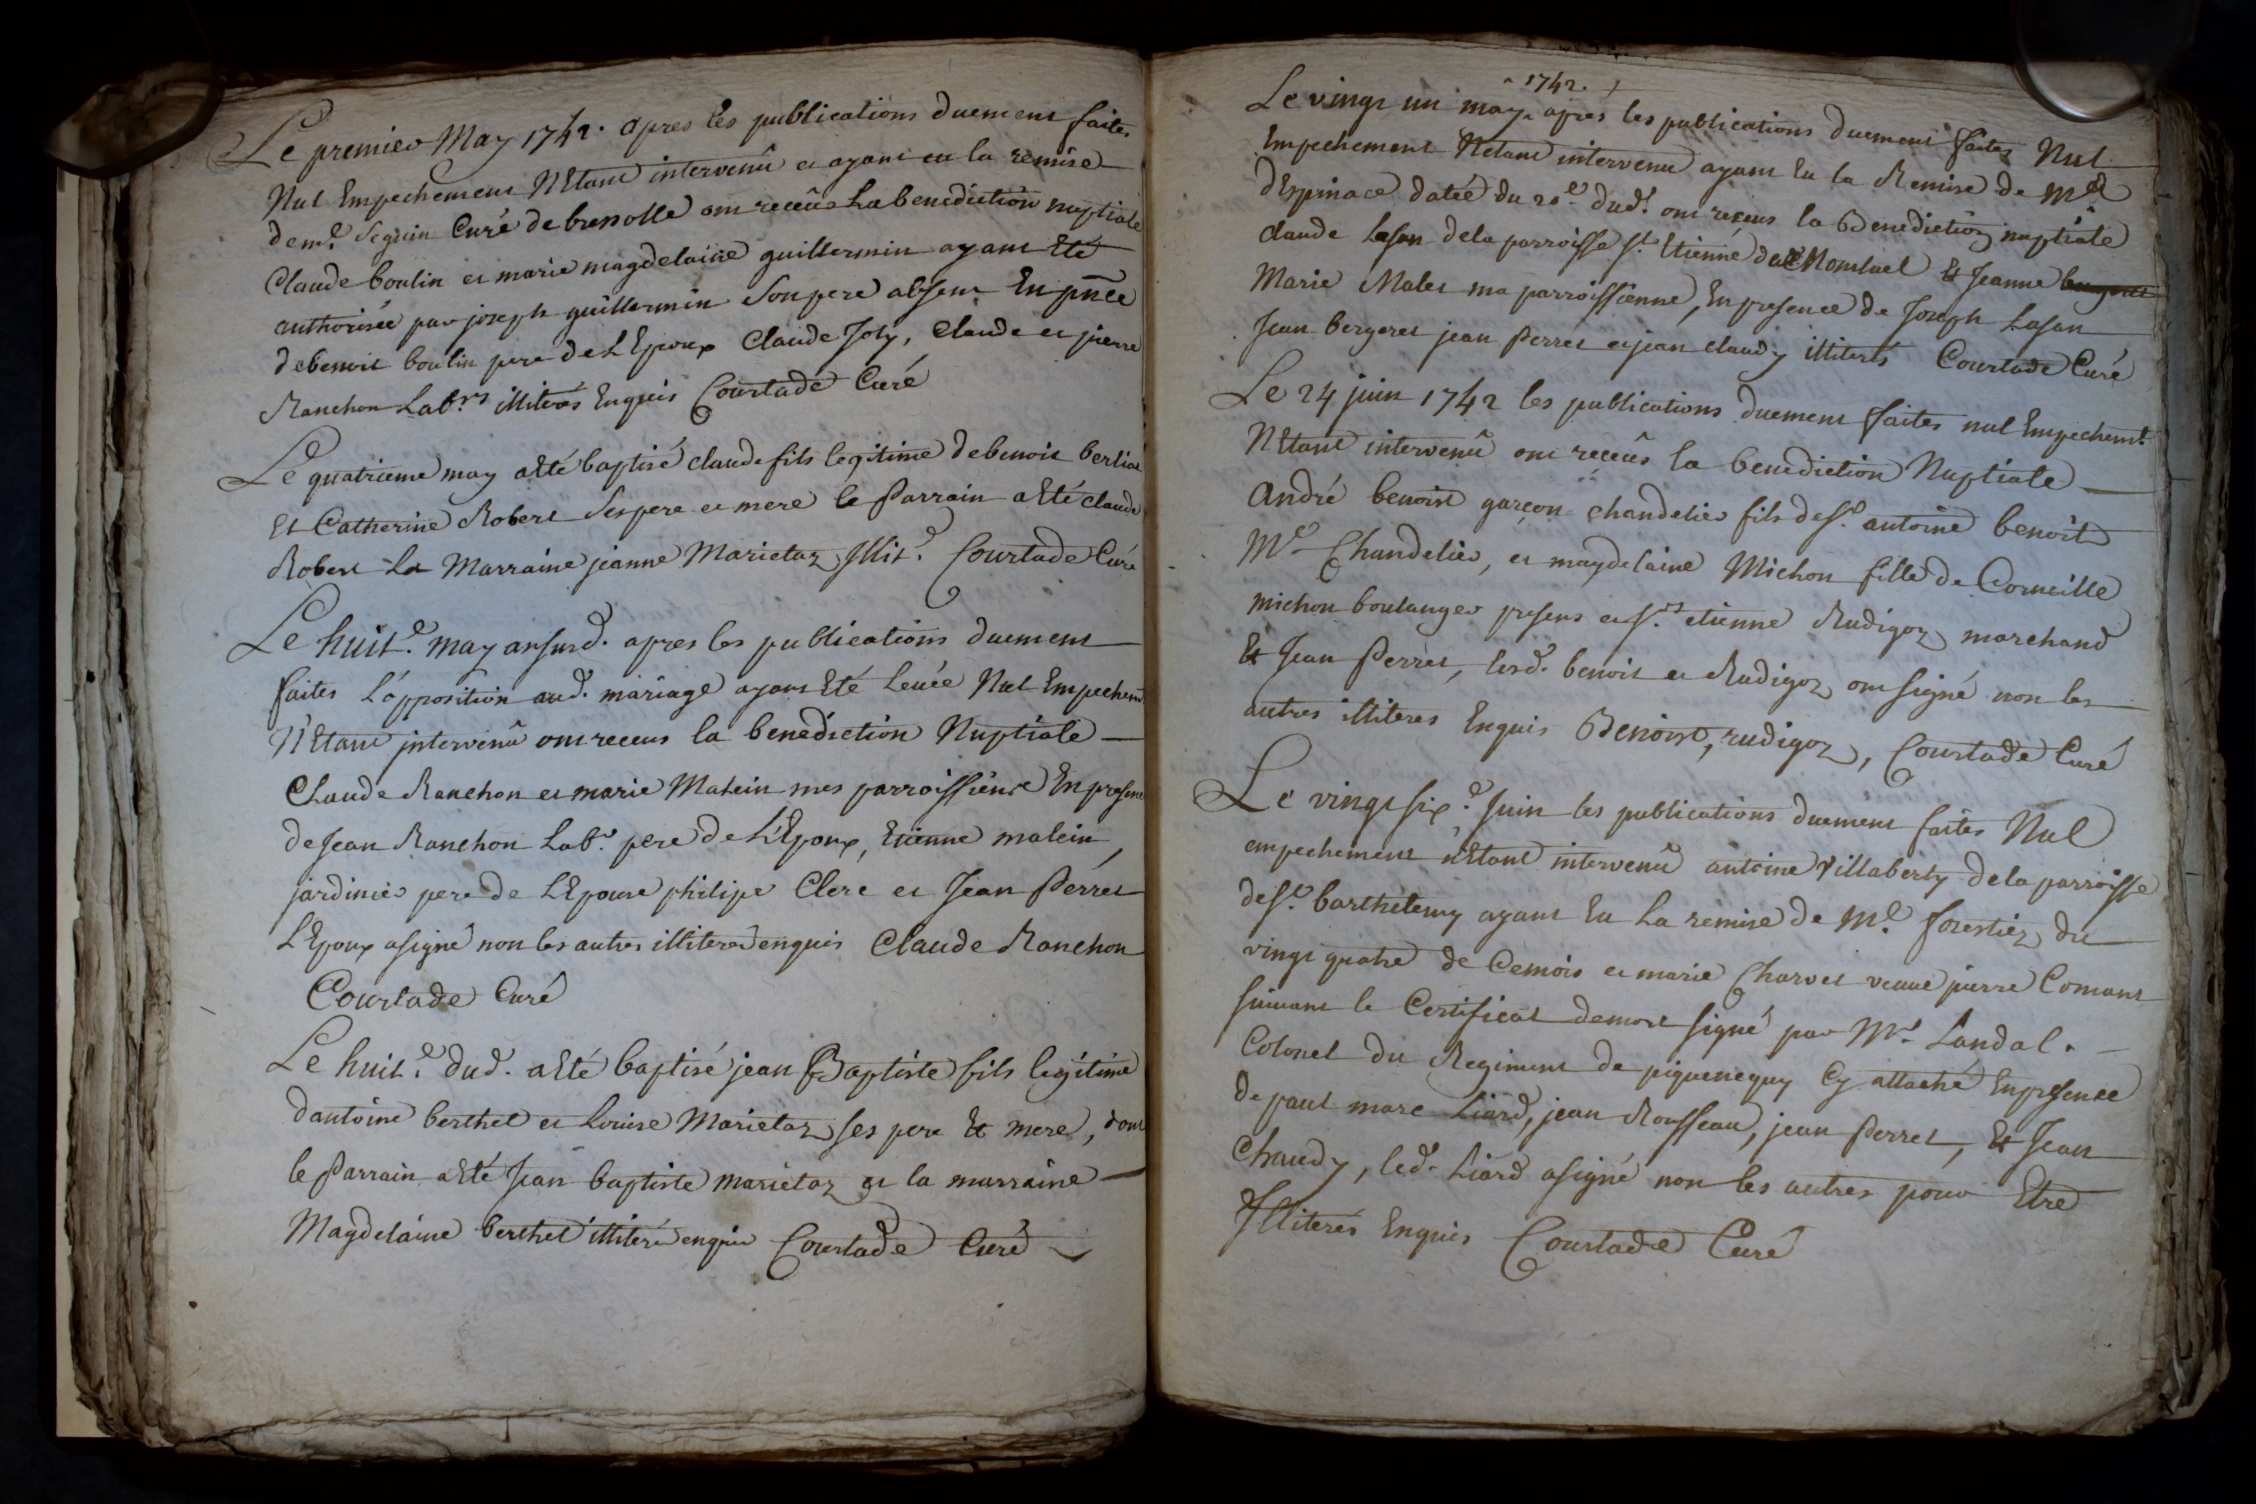 Le premier May 1742. apres les publications duement faites
Nul Empechement NEtant intervenû et ayant eu la remise
de mr. Seguin Curé de bressolle ont receûs La benediction nuptiale
Claude boulin et marie magdelaine guillermin ayant Eté
authorisée par joseph guillermin Son pere absent En pnce
de benoit boulin pere de LEpoux Claude Joly, Claude et pierre
Ranchon Labrs illiterés Enquis Courtade Curé
Le quatrieme may aEté baptisé claude fils legitime de benoit berliat
Et Catherine Robert Ses pere et mere le Parrain aEté claude
Robert La Marraine jeanne Marietaz Illit. Courtade Curé
Le huit.e may an susd. apres les publications duement
faites L'opposition aud. mariage ayant Eté Levée Nul Empechemt
N'Etant intervenû ont receus la benediction Nuptiale
Claude Ranchon et marie Matein mes parroissiens En presence
de Jean Ranchon Labr. pere de L'Epoux, Etienne matein,
jardinier pere de LEpouse philipe Clerc et Jean Perret
LEpoux asigné non les autres illiteres enquis Claude Ranchon
Courtade Curé
Le huit.e dud. aEté baptisé jean Baptiste fils legitime
dantoine berthet et Louise Marietaz ses pere Et mere, dont
le Parrain aEté Jean baptiste marietaz et la marraine
Magdelaine berthet illiteré enquis Courtade Curé
1742.
Le vingt un may apres les publications duement faites Nul
Empechement NEtant intervenu ayant Eu la Remise de Mr
dEspinace datée du 20e. dud. ont receus la Benediction nuptiale
Claude Lasan de la parroisse st. Etienne de Montluel Et Jeanne
Marie Malet ma parroissienne, En presence de Joseph Lasan
Jean bergeret jean Perret et jean claudy illiterés Courtade Curé
Le 24 juin 1742 les publications duement faites nul Empechemt
NEtant intervenû ont receûs la benediction Nuptiale
André benoist garçon chandelier fils de sr. antoine benoist
Me Chandelier, et magdelaine Michon fille de Corneille
michon boulanger presens et srs. etienne Rudigoz marchand
Et Jean Perret, lesd. benoit et Rudigoz ont signé non les
autres illiteres Enquis Benoist, rudigoz, Courtade Curé
Le vingt six.e Juin les publications duement faites Nul
empechement nEtant intervenû antoine Villaberty de la parroisse
de st. barthelemy ayant Eu La remise de Mr. forestier du
vingt quatre de Cemois et marie Charvet veuve pierre Comant
suivant le Certificat demort signé par Mr. Landal.
Colonel du Regiment de piguenequy Cy attaché En presence
de paul marc Liard, jean Rousseau, jean Perret, Et Jean
Chaudy, led. Liard asigné non les autres pour Etre
Illiterés Enquis Courtade Curé